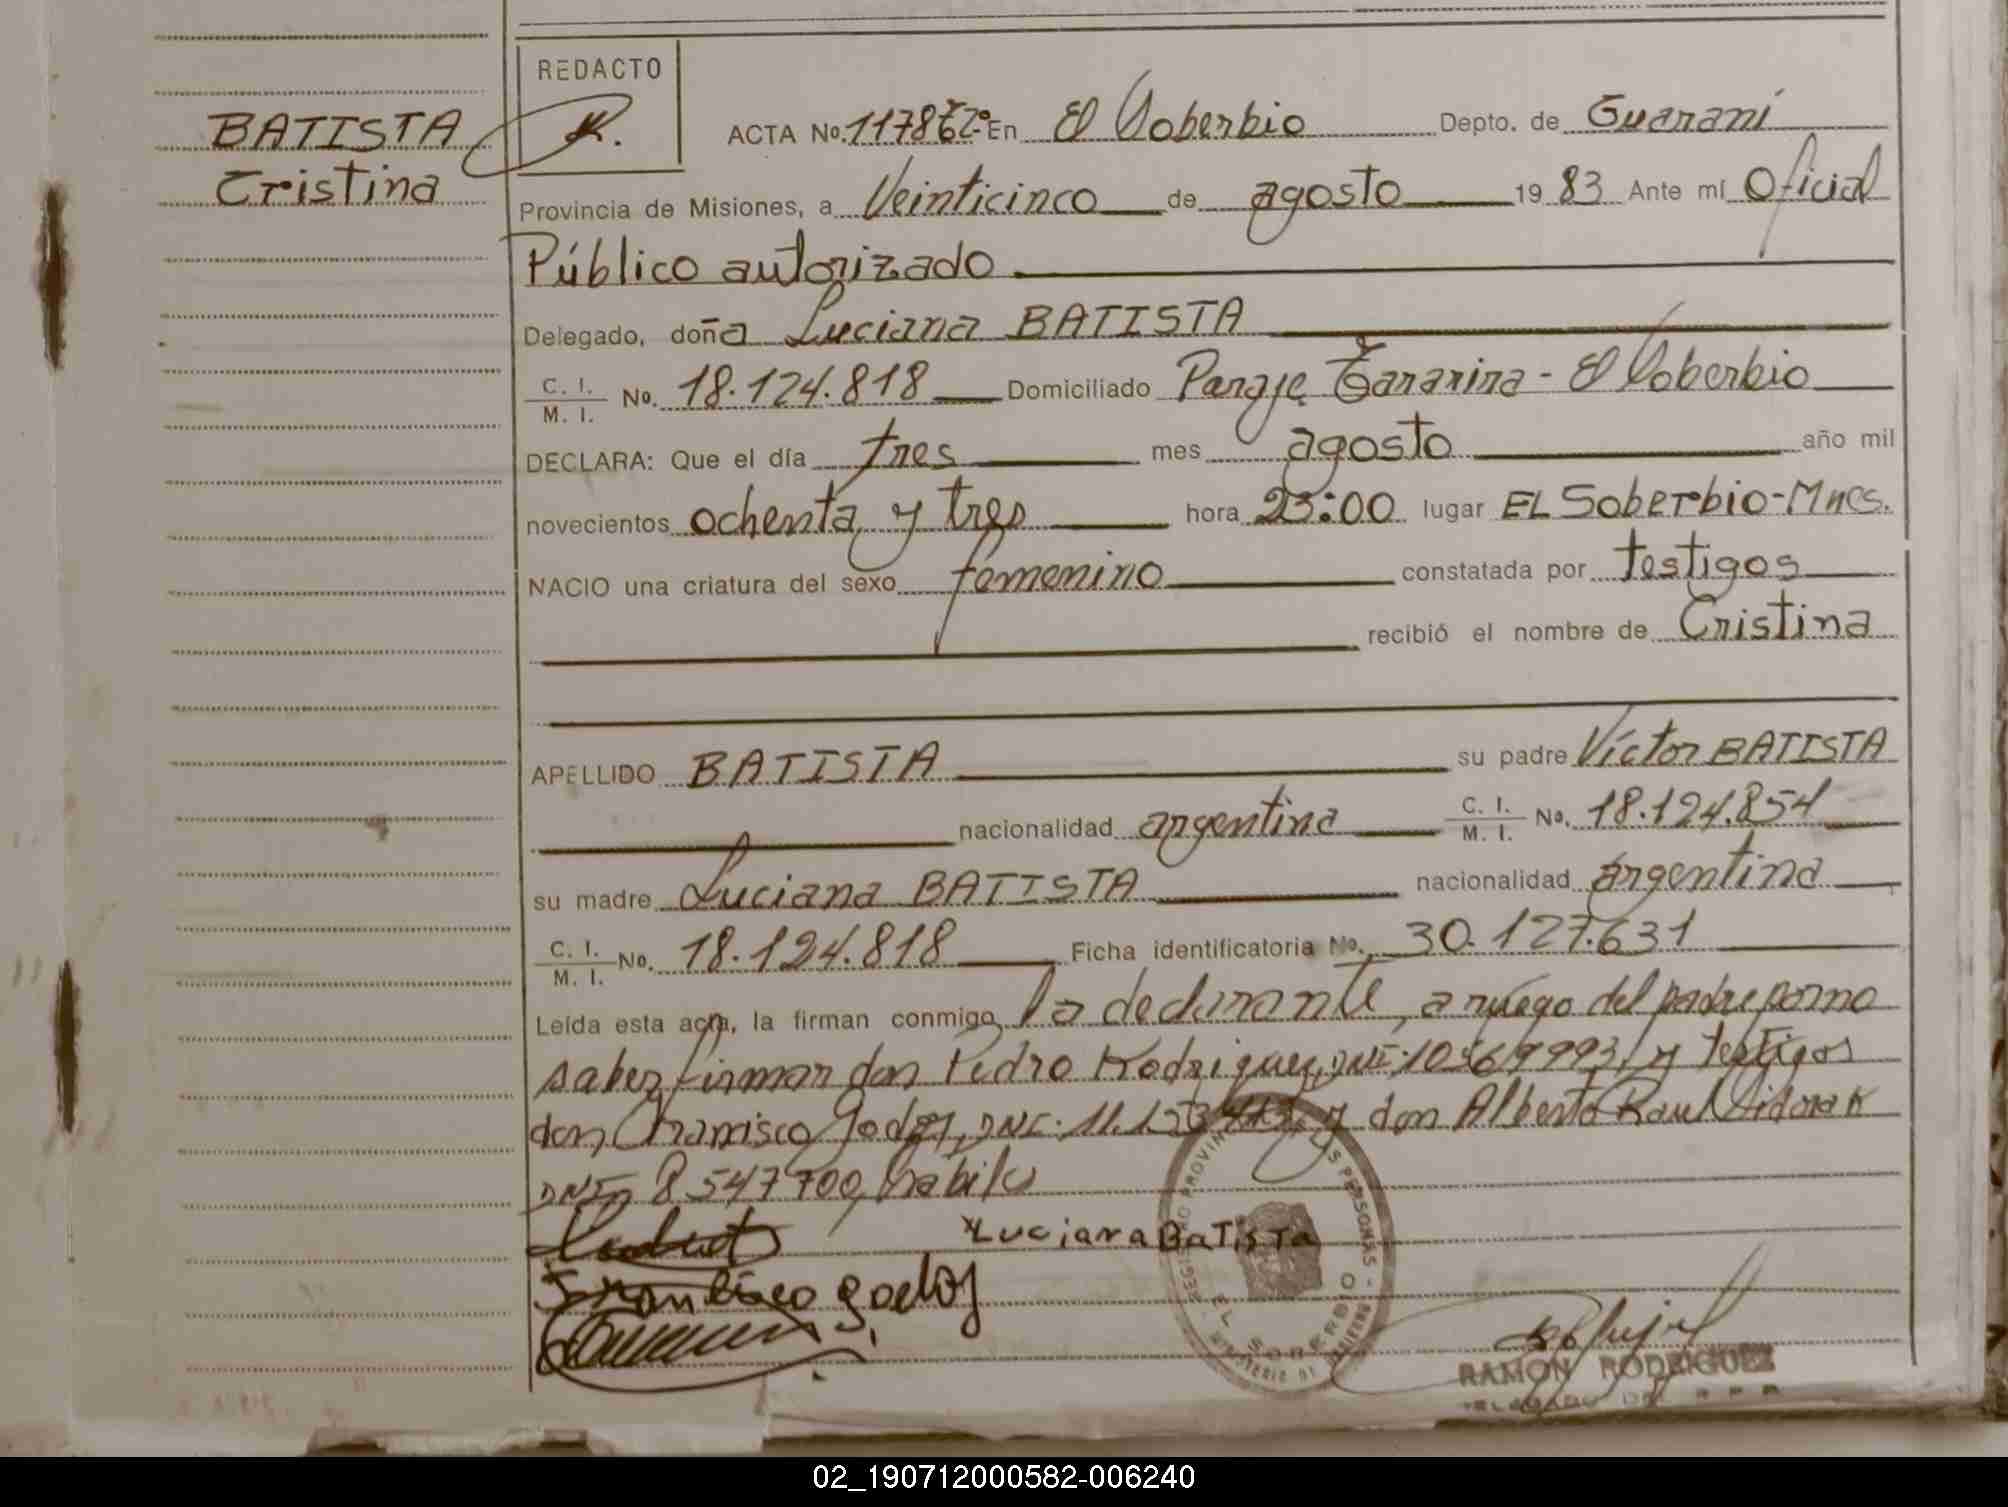 BATISTA
Cristina
REDACTO
ACTA No. 117862 En El Soberbio Depto. de Guaraní
Provincia de Misiones, a Veinticinco de agosto 19 83 Ante mí Oficial
Público autorizado
Delegado, doña Luciana BATISTA
C. I. / M. I. No. 18.124.818 Domiciliado Paraje - El Soberbio
DECLARA: Que el día tres mes agosto año mil
novecientos ochenta y tres hora 23:00 lugar EL Soberbio-Mnes.
NACIO una criatura del sexo femenino constatada por testigos
recibió el nombre de Cristina
APELLIDO BATISTA su padre Víctor BATISTA
nacionalidad argentina C. I. / M. I. No. 18.124.854
su madre Luciana BATISTA nacionalidad argentina
C. I. / M. I. No. 18.124.818 Ficha identificatoria No. 30.127.631
Leída esta acta, la firman conmigo la declarante, a ruego del padre por no
saber firmar don Pedro Rodriguez, DNI. y testigos
don Francisco Godoy, DNI. y don Alberto Raul
DNI n 8547700, habiles
Luciana BaTisTa
Francisco godoy
EL SOBERBIO
RAMON RODRIGUEZ
02_190712000582-006240